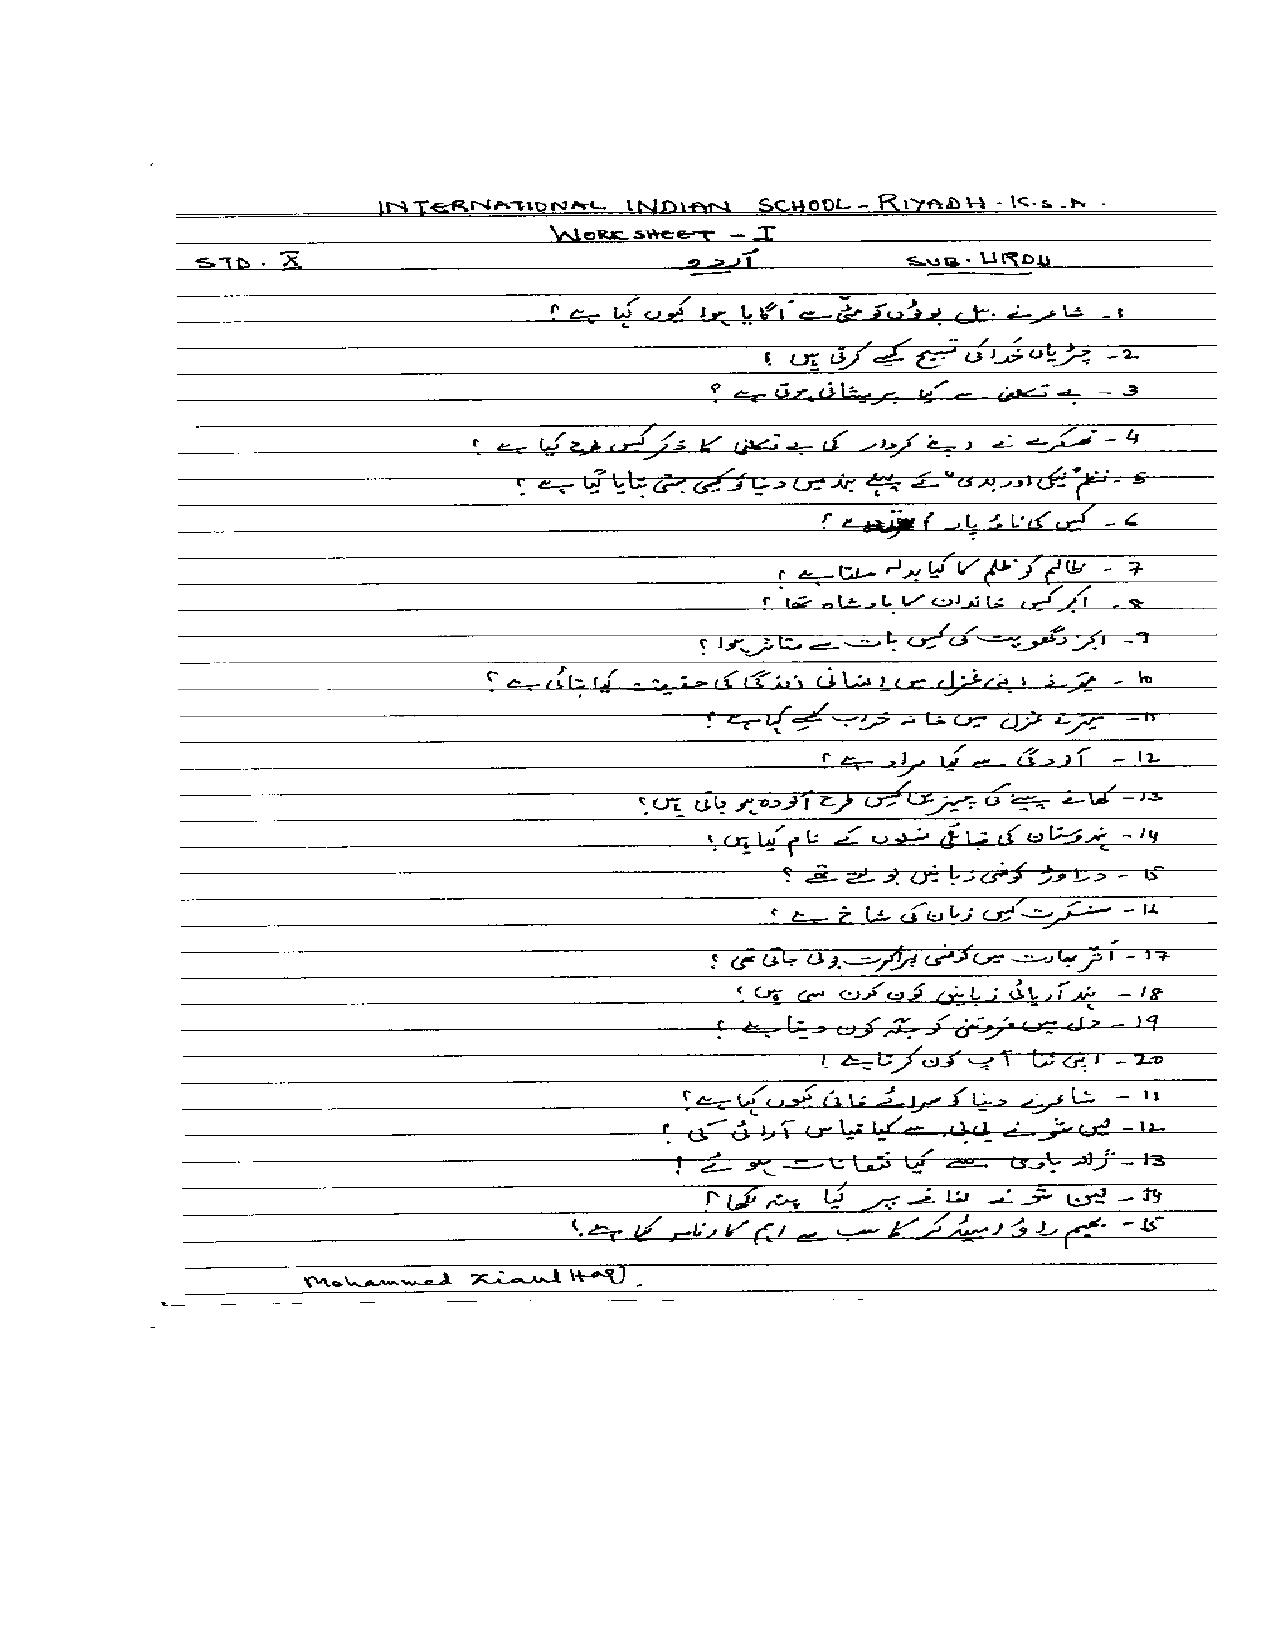 INTERNATIONAL INDIAN SCHOOL - RIYADH - K.S.A.
WORKSHEET - I
STD. X اُردو SUB. URDU
1- شاعر نے بیل بوٹوں کو مٹی سے اُگایا ہوا کیوں کہا ہے؟
2- چڑیاں خدا کی تسبیح کیسے کرتی ہیں؟
3- بے تکلفی سے کیا پریشانی ہوتی ہے؟
4- نے اپنے کردار کی بے تکلفی کا ذکر کس طرح کیا ہے؟
5- نظم "نیکی اور بدی" کے پہلے بند میں دنیا کو کیسی بستی بتایا گیا ہے؟
6- کس کی ناؤ پار اترتی ہے؟
7- ظالم کو ظلم کا کیا بدلہ ملتا ہے؟
8- اکبر کس خاندان کا بادشاہ تھا؟
9- اکبر کی کس بات سے متاثر ہوا؟
10- میر نے اپنی غزل میں انسانی زندگی کی حقیقت کیا بتائی ہے؟
11- میر نے غزل میں خانہ خراب کسے کہا ہے؟
12- آلودگی سے کیا مراد ہے؟
13- کھانے پینے کی چیزیں کس طرح آلودہ ہو جاتی ہیں؟
14- ہندوستان کی قبائلی کے نام کیا ہیں؟
15- دراوڑ کونسی زبانیں بولتے تھے؟
16- سنسکرت کس زبان کی شاخ ہے؟
17- اُتر بھارت میں کونسی پراکرت بولی جاتی تھی؟
18- ہند آریائی زبانیں کون کون سی ہیں؟
19- دل میں فروتنی کو جگہ کون دیتا ہے؟
20- اپنی ثنا آپ کون کرتا ہے؟
11- شاعر نے دنیا کو سرائے فانی کیوں کہا ہے؟
12- نے سے کیا قیاس آرائی کی؟
13- ژالہ باری سے کیا نقصانات ہوئے؟
14- نے لفافے پر کیا پتہ لکھا؟
15- بھیم راؤ امبیڈکر کا سب سے اہم کارنامہ کیا ہے؟
Mohammed Ziaul Haq.